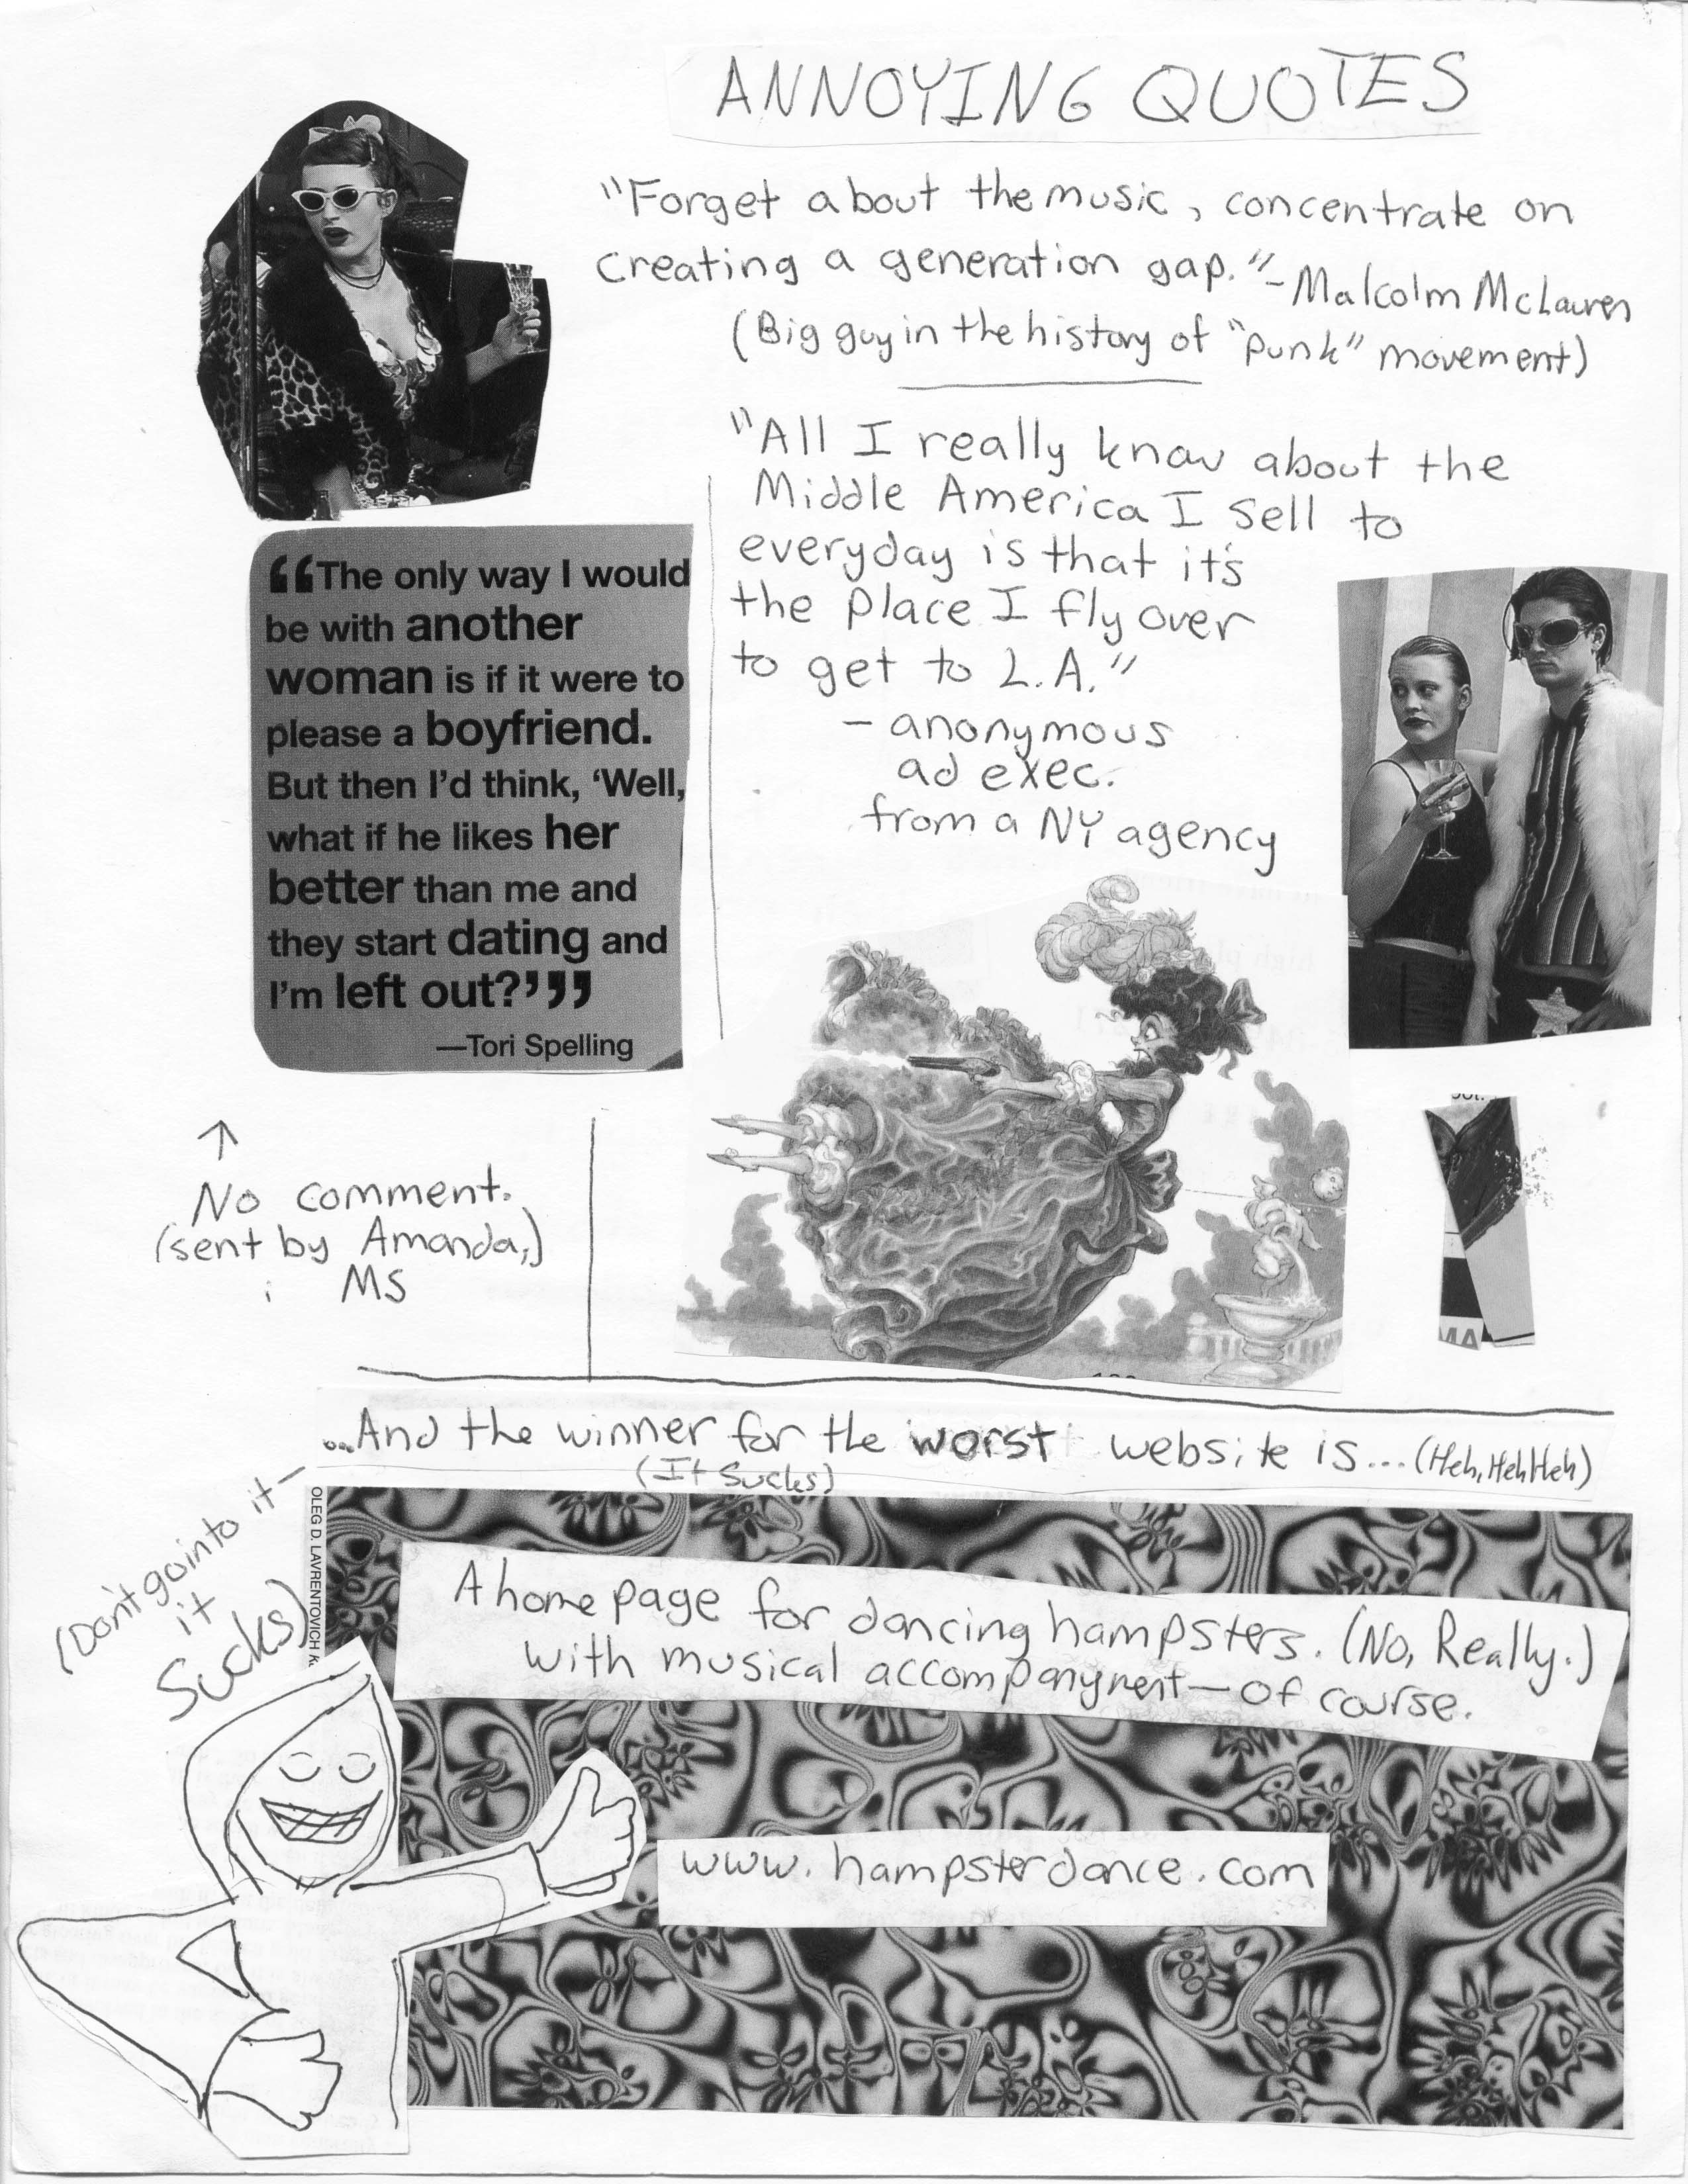 ANNOYING QUOTES
"Forget about the music, concentrate on
creating a generation gap." - Malcolm McLauren
(Big guy in the history of "punk" movement)
"All I really know about the
Middle America I sell to
everyday is that it's
the place I fly over
to get to L.A."
- anonymous
ad exec.
from a NY agency
“The only way I would
be with another
woman is if it were to
please a boyfriend.
But then I'd think, ‘Well,
what if he likes her
better than me and
they start dating and
I'm left out?’”
—Tori Spelling
↑
No comment.
(sent by Amanda,)
MS
MA
...And the winner for the worst website is... (Heh, Heh Heh)
(It Sucks)
(Don't go into it—
it
Sucks)
OLEG D. LAVRENTOVICH
A home page for dancing hampsters. (No, Really.)
with musical accompanyment — of course.
www.hampsterdance.com